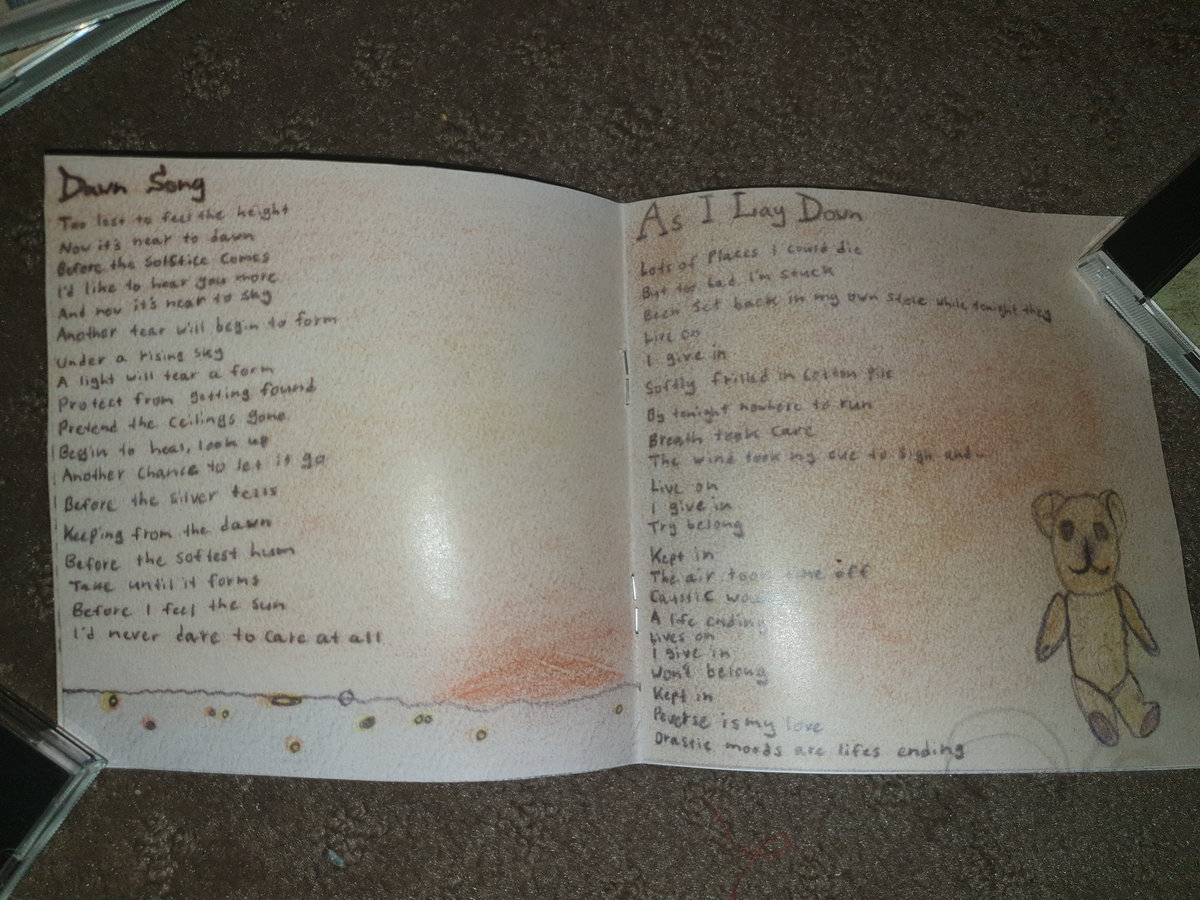 Dawn Song
Too lost to feel the height
Now it's near to dawn
Before the Solstice comes
I'd like to hear you more
And now it's near to sky
Another tear will begin to form
Under a rising sky
A light will tear a form
Protect from getting found
Pretend the Ceilings gone
Begin to heal, look up
Another Chance to let it go
Before the silver tells
Keeping from the dawn
Before the softest hum
Take until it forms
Before I feel the Sun
I'd never dare to care at all
As I Lay Down
Lots of Places I could die
But too bad I'm stuck
Been Set back in my own while tonight they
Live on
I give in
Softly frilled in Cotton Pile
By tonight nowhere to run
Breath took care
The wind took my cue to Sigh and
Live on
I give in
Try belong
Kept in
The air took time off
Caustic
A life ending
Lives on
I give in
Won't belong
Kept in
Peverse is my love
Drastic moods are lifes ending